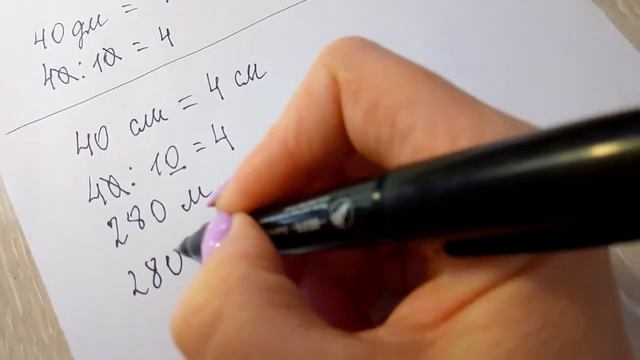 40 дм =
40 : 10 = 4
40 см = 4 см
40 : 10 = 4
280 м
280